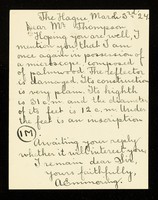 The Hague March 3rd 24
Dear Mr Thompson.
Hoping you are well, I
mention you that I am
once again in possession of
a microscope, composed
of palmwood. The reflector
is diamond. Its construction
is very plain. Its highth
is 31 c.m. and the diameter
of its feet is 12 c.m. Under
the feet is an inscription
(1M)
Awaiting your reply
whether it will interest you,
I remain dear Sir,
Yours faithfully,